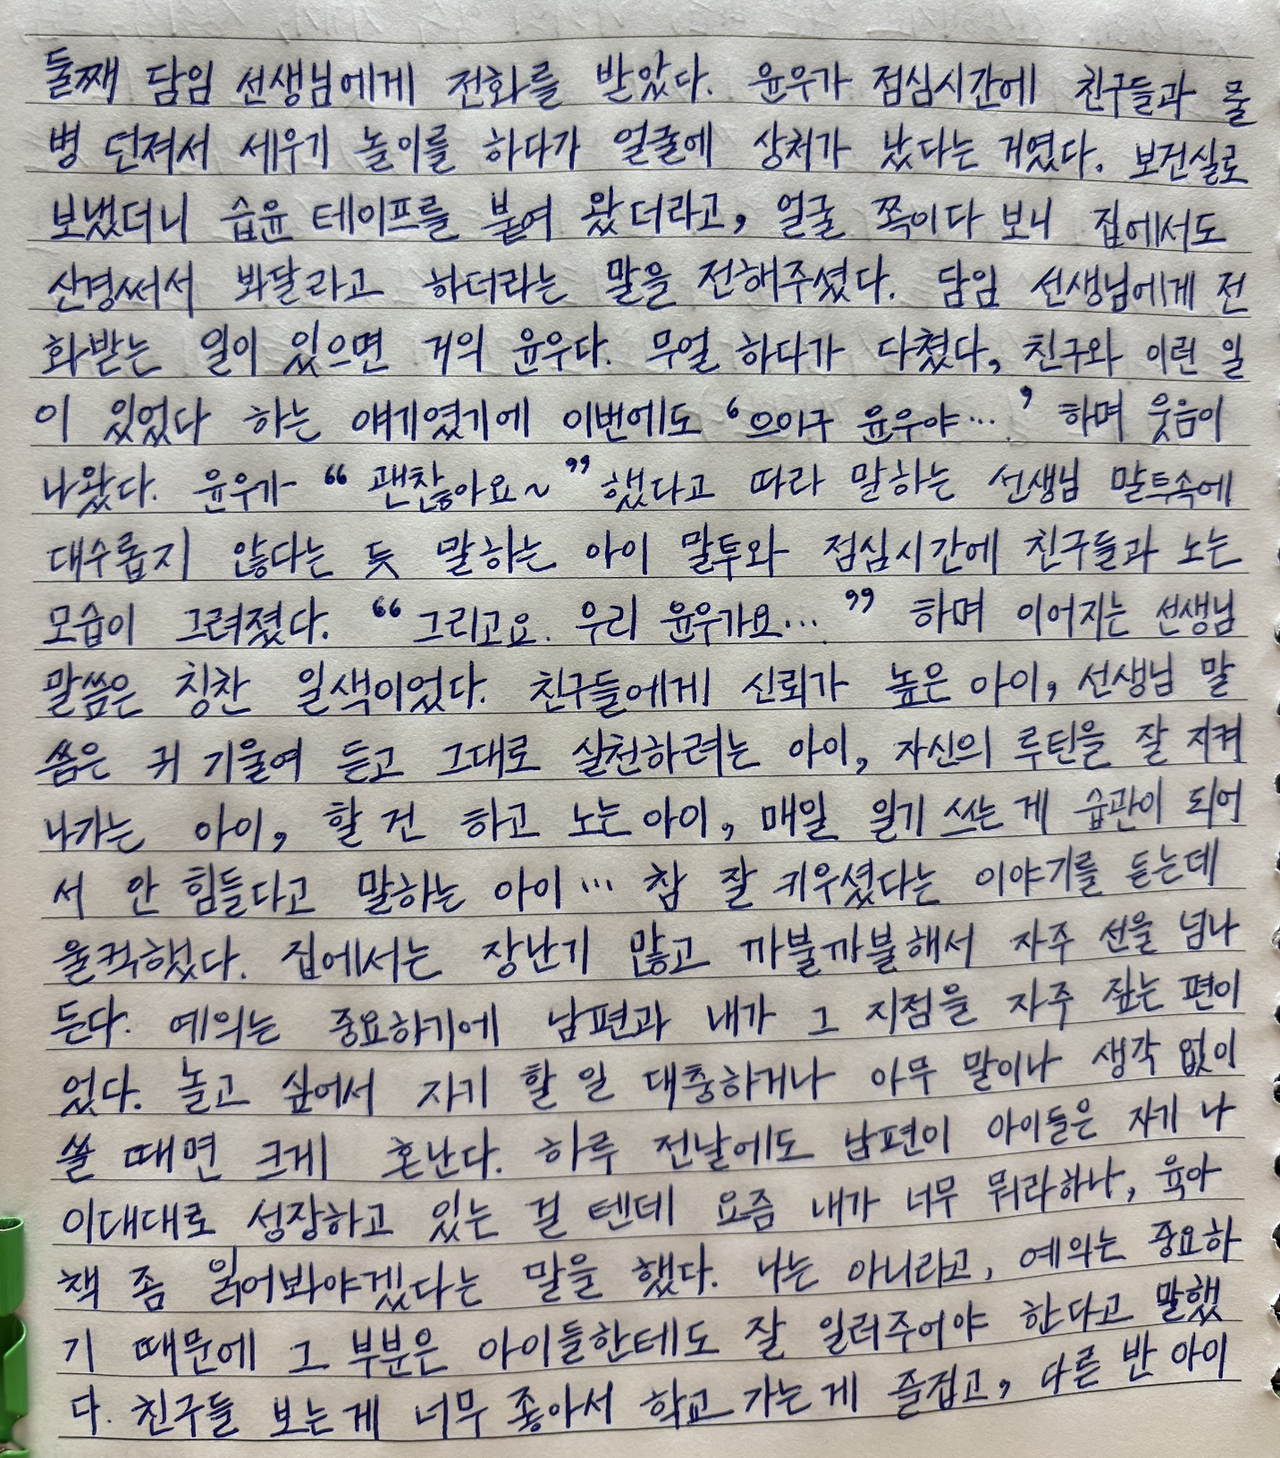 둘째 담임 선생님에게 전화를 받았다. 윤우가 점심시간에 친구들과 물
병 던져서 세우기 놀이를 하다가 얼굴에 상처가 났다는 거였다. 보건실로
보냈더니 습윤 테이프를 붙여 왔더라고, 얼굴 쪽이다 보니 집에서도
신경써서 봐달라고 하더라는 말을 전해주셨다. 담임 선생님에게 전
화받는 일이 있으면 거의 윤우다. 무얼 하다가 다쳤다, 친구와 이런 일
이 있었다 하는 얘기였기에 이번에도 ‘으이구 윤우야…’ 하며 웃음이
나왔다. 윤우가 “괜찮아요~” 했다고 따라 말하는 선생님 말투속에
대수롭지 않다는 듯 말하는 아이 말투와 점심시간에 친구들과 노는
모습이 그려졌다. “그리고요. 우리 윤우가요…” 하며 이어지는 선생님
말씀은 칭찬 일색이었다. 친구들에게 신뢰가 높은 아이, 선생님 말
씀은 귀 기울여 듣고 그대로 실천하려는 아이, 자신의 루틴을 잘 지켜
나가는 아이, 할 건 하고 노는 아이, 매일 일기 쓰는 게 습관이 되어
서 안 힘들다고 말하는 아이… 참 잘 키우셨다는 이야기를 듣는데
울컥했다. 집에서는 장난기 많고 까불까불해서 자주 선을 넘나
든다. 예의는 중요하기에 남편과 내가 그 지점을 자주 짚는 편이
었다. 놀고 싶어서 자기 할 일 대충하거나 아무 말이나 생각 없이
쓸 때면 크게 혼난다. 하루 전날에도 남편이 아이들은 자기 나
이대대로 성장하고 있는 걸 텐데 요즘 내가 너무 뭐라하나, 육아
책 좀 읽어봐야겠다는 말을 했다. 나는 아니라고, 예의는 중요하
기 때문에 그 부분은 아이들한테도 잘 일러주어야 한다고 말했
다. 친구들 보는게 너무 좋아서 학교 가는게 즐겁고, 다른 반 아이